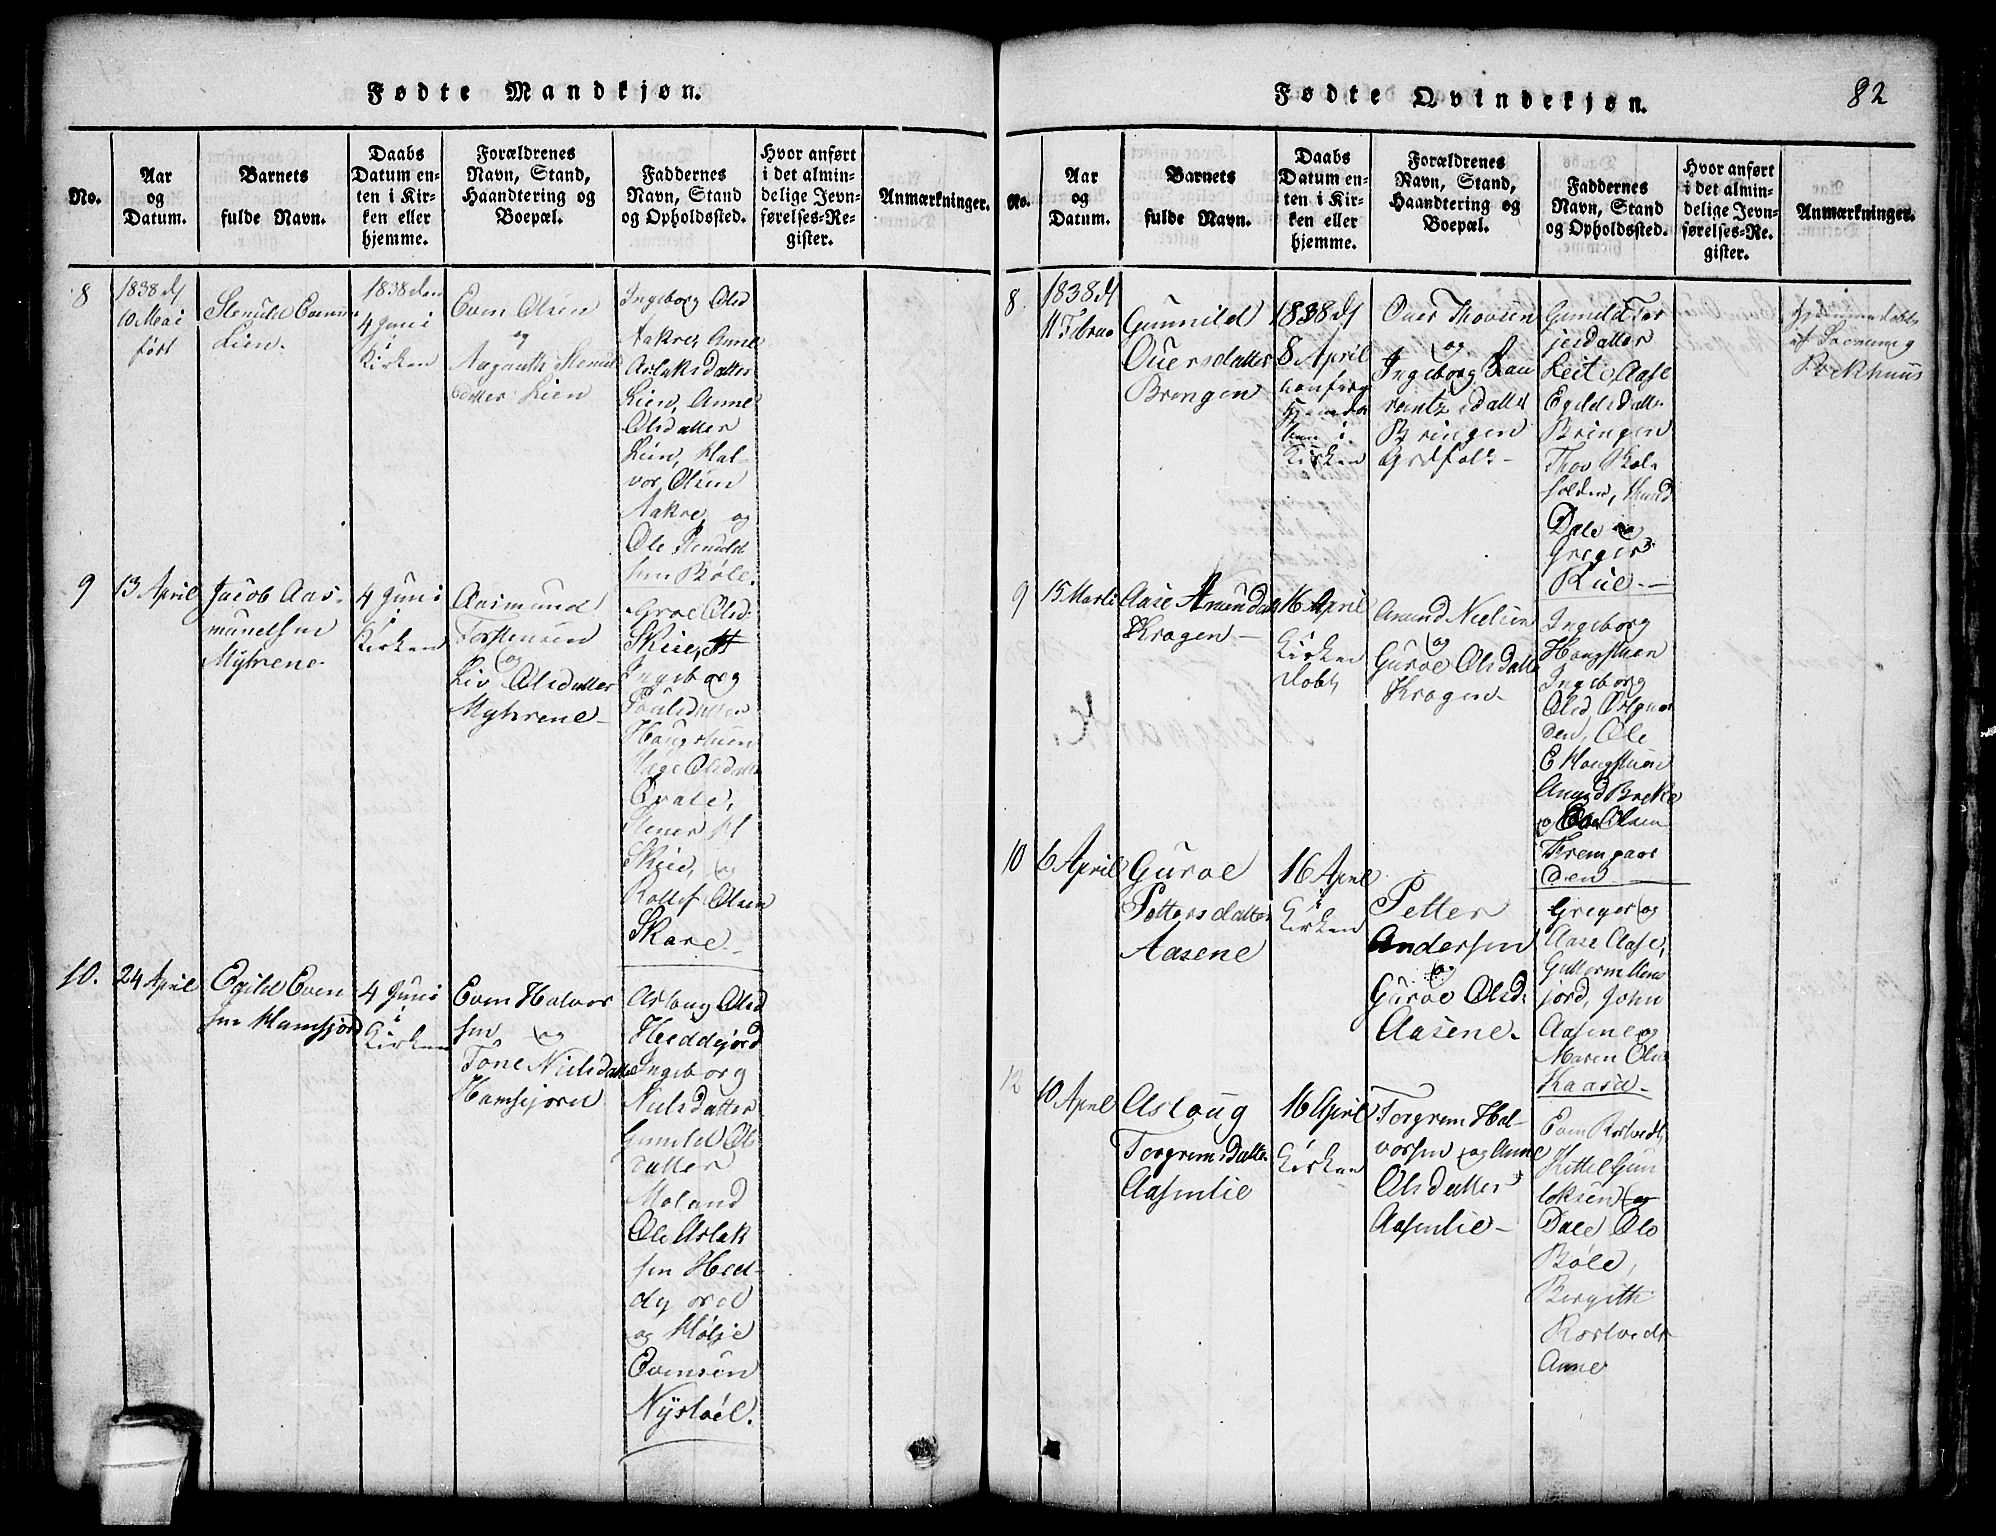 Fødte Mandkjøn.
No.
Aar
og
Datum.
Barnets
fulde Navn.
Daabs
Datum en-
ten i Kir-
ken eller
hjemme.
Forældrenes
Navn, Stand,
Haandtering og
Boepæl.
Faddernes
Navn, Stand
og Opholdssted.
Hvor anført
i det almin-
delige Jevn-
førelses-Re-
gister.
Anmærkninger.
8
1838 d
10 Mai
født
Lien.
1838 den
4 Juni
i
Kirken
Even Olsen
og
datter Lien
Ingeborg Olsd
Aakre, Anne
Aslaksdatter
Lien, Anne
Olsdatter
Lien, Hal-
vor Olsen
Aakre, og
Ole
sen Bøle.
9
13 April
Jacob Aas-
mundsen
Myhrene
4 Juni
i
Kirken
Aasmund
Torstensen
og
Liv Olsdatter
Myhrene
Groe Olsd:
Skiie,
Ingeborg
Poulsdatter
Haugstuen
Olsdatter
Skiie, og
Rollef Olsen
Skare
10.
24 April
Egild Even
sen Hamsjord
4 Juni
i
Kirken
Even Halvor
sen og
Tone Nielsdatter
Hamsjord
Asloug Olsd
Heddejord
Ingeborg
Nielsdatter
Gunild Ols
datter
Moland
Ole Aslak
sen Hed-
dejord
og Kølje
Evensen
Nystøel.
Fødte Qvindekjøn.
82
No.
Aar
og
Datum.
Barnets
fulde Navn.
Daabs
Datum en-
ten i Kir-
ken eller
hjemme.
Forældrenes
Navn, Stand,
Haandtering og
Boepæl.
Faddernes
Navn, Stand
og Opholdssted.
Hvor anført
i det almin-
delige Jevn-
førelses-Re-
gister.
Anmærkninger.
8
1838 d
11 Febru
Gunnild
Ouersdatter
Bringen
1838 d
8 April
i
Kirken
Ouer Thovsen
og
Ingeborg Lau
rantzsdatter
Bringen
Grdfolk
Gunild Tor
jersdatter
Leite, Aase
Egildsdatter
Bringen
Thov Bøl-
Dale og
Greger
Rue
hjemmedøbt
af
Bockhuus
9
15 Marti
Aase Amunds
Kragen
16 April
Kirken
døbt
Amund Nielsen
og
Guroe Olsdatter
Kragen
Ingeborg
Haugstuen
Ingeborg
Olsd
den, Ole
E Haugstuen
Amund Brekke
og Olsen
den
10
6 April
Guroe
Pettersdatter
Aasene
16 April
i
Kirken
Petter
Andersen
og
Guroe Olsd:
Aasene
Greger og
Aase Aase,
Guttorm
jord, John
Aasene og
Maren Ols
Kaasa
12
10 April
Aslaug
Torgremsdatter
Aasmlie
16 April
i
Kirken
Torgrem Hal-
vorsen og Anne
Olsdatter
Aasmlie
Even Rostvedt,
Kittel Gun
loksen og
Dale Ole
Bøle,
Birgitte
Rostvedt
Anne